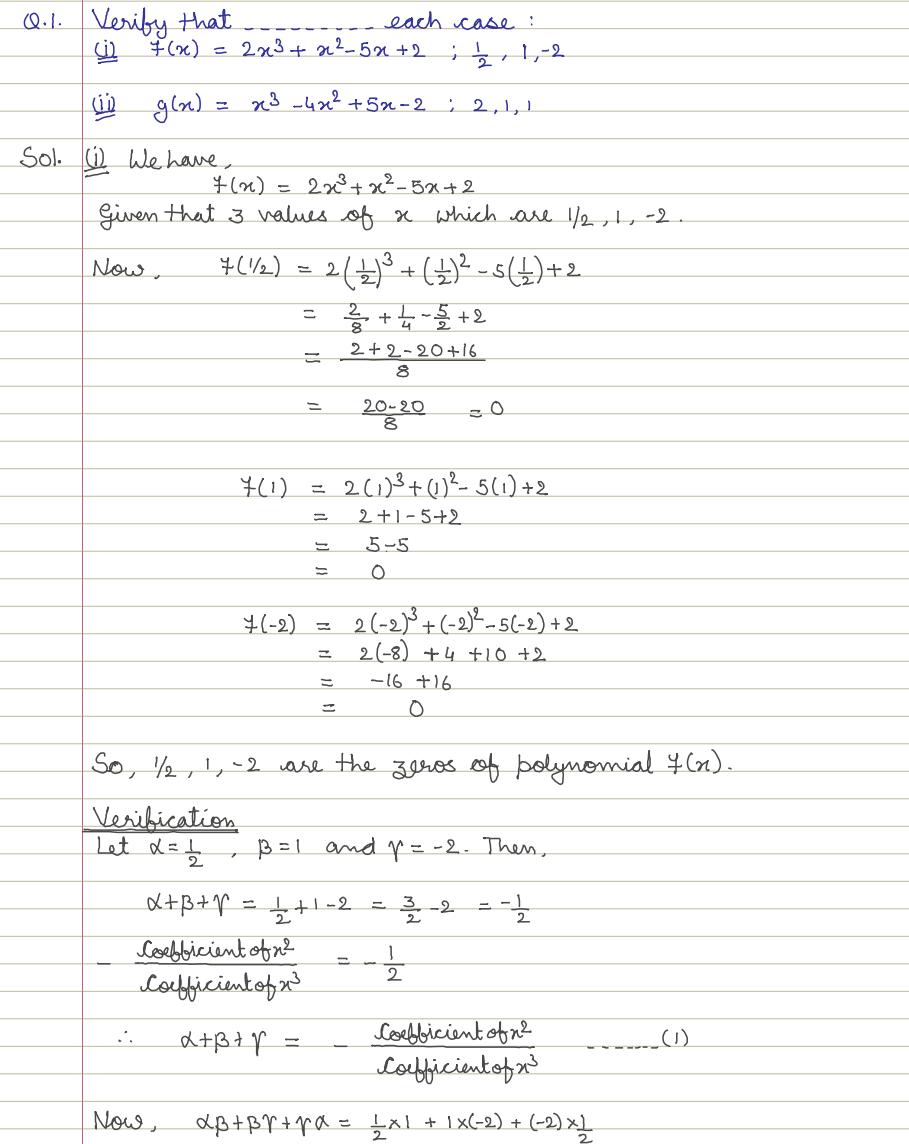 Q.1. Verify that --------- each case :
(i) f(x) = 2x³ + x² - 5x + 2 ; 1/2 , 1, -2
(ii) g(x) = x³ - 4x² + 5x - 2 ; 2, 1, 1
Sol. (i) We have,
f(x) = 2x³ + x² - 5x + 2
Given that 3 values of x which are 1/2, 1, -2.
Now, f(1/2) = 2(1/2)³ + (1/2)² - 5(1/2) + 2
= 2/8 + 1/4 - 5/2 + 2
= (2 + 2 - 20 + 16)/8
= (20-20)/8 = 0
f(1) = 2(1)³ + (1)² - 5(1) + 2
= 2 + 1 - 5 + 2
= 5 - 5
= 0
f(-2) = 2(-2)³ + (-2)² - 5(-2) + 2
= 2(-8) + 4 + 10 + 2
= -16 + 16
= 0
So, 1/2, 1, -2 are the zeros of polynomial f(x).
Verification
Let α = 1/2 , β = 1 and γ = -2. Then,
α+β+γ = 1/2 + 1 - 2 = 3/2 - 2 = -1/2
- Coefficient of x²/Coefficient of x³ = - 1/2
∴ α+β+γ = - Coefficient of x²/Coefficient of x³ -------(1)
Now, αβ+βγ+γα = 1/2 × 1 + 1×(-2) + (-2)×1/2